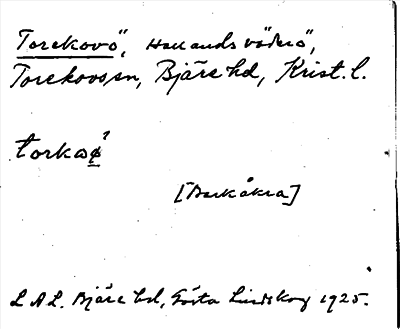 "Torekovö", Hallands väderö",
Torekovs sn, Bjäre hd, Krist. l.
torkaø̱²
[Barkåkra]
L A L. Bjäre hd, Gösta Lindskog 1925.